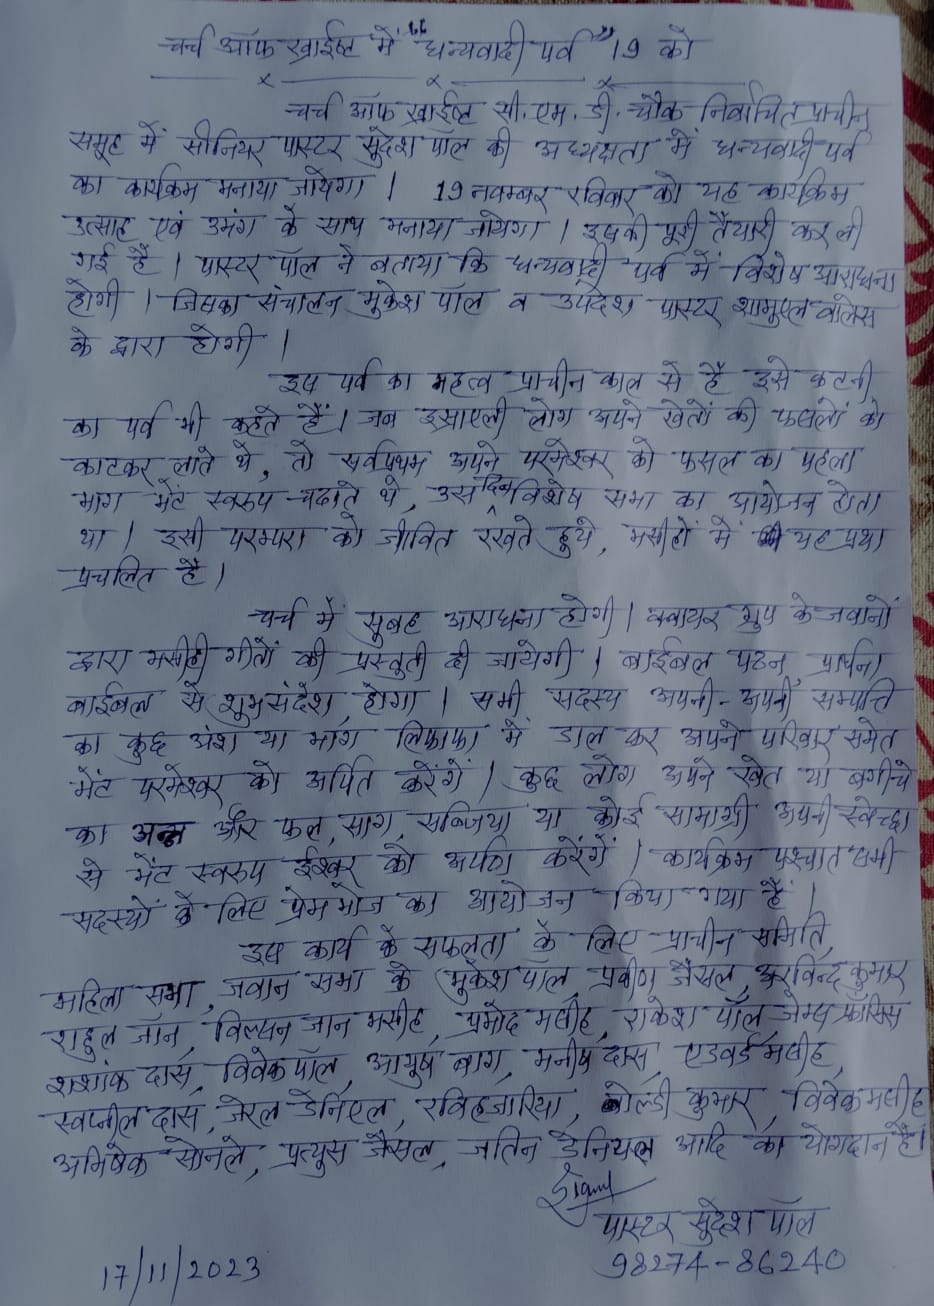 चर्च ऑफ ख्राईष्ट में "धन्यवादी पर्व" 19 को
चर्च ऑफ ख्राईष्ट सी. एम. डी. चौक निर्वाचित प्राचीन
समूह में सीनियर पास्टर सुदेश पॉल की अध्यक्षता में धन्यवादी पर्व
का कार्यक्रम मनाया जायेगा। 19 नवम्बर रविवार को यह कार्यक्रम
उत्साह एवं उमंग के साथ मनाया जायेगा। इसकी पूरी तैयारी कर ली
गई है। पास्टर पॉल ने बताया कि धन्यवादी पर्व में विशेष आराधना
होगी। जिसका संचालन मुकेश पॉल व उपदेश पास्टर शामुएल वॉलेस
के द्वारा होगी।
इस पर्व का महत्व प्राचीन काल से है इसे कटनी
का पर्व भी कहते हैं। जब इस्राएली लोग अपने खेतों की फसलों को
काटकर लाते थे, तो सर्वप्रथम अपने परमेश्वर को फसल का पहला
भाग भेंट स्वरुप चढाते थे, उस दिन विशेष सभा का आयोजन होता
था। इसी परम्परा को जीवित रखते हुये, मसीहों में यह प्रथा
प्रचलित है।
चर्च में सुबह आराधना होगी। क्वायर ग्रुप के जवानों
द्वारा मसीही गीतों की प्रस्तुती दी जायेगी। बाईबल पठन, प्रार्थना
बाईबल से शुभसंदेश होगा। सभी सदस्य अपनी-अपनी सम्पत्ति
का कुछ अंश या भाग लिफाफा में डाल कर अपने परिवार समेत
भेंट परमेश्वर को अर्पित करेंगें। कुछ लोग अपने खेत या बगीचे
का अन्न और फल, साग, सब्जिया या कोई सामाग्री अपनी स्वेच्छा
से भेंट स्वरुप ईश्वर को अर्पण करेंगें। कार्यक्रम पश्चात सभी
सदस्यों के लिए प्रेम भोज का आयोजन किया गया है।
इस कार्य के सफलता के लिए प्राचीन समिति,
महिला सभा, जवान सभा के मुकेश पॉल, प्रवीण जैसल, अरविन्द कुमार
राहुल जॉन, विल्सन जान मसीह, प्रमोद मसीह, राकेश पॉल, जेम्स फ्रांसिस
शशांक दास, विवेक पॉल, आयुष बाग, मनीष दास, एडवर्ड मसीह,
स्वप्नील दास, जेरल डेनिएल, रवि हजारिया, गोल्डी कुमार, विवेक मसीह
अभिषेक सोनले, प्रत्युस जैसल, जतिन डेनियल आदि का योगदान है।
पास्टर सुदेश पॉल
98274-86240
17/11/2023